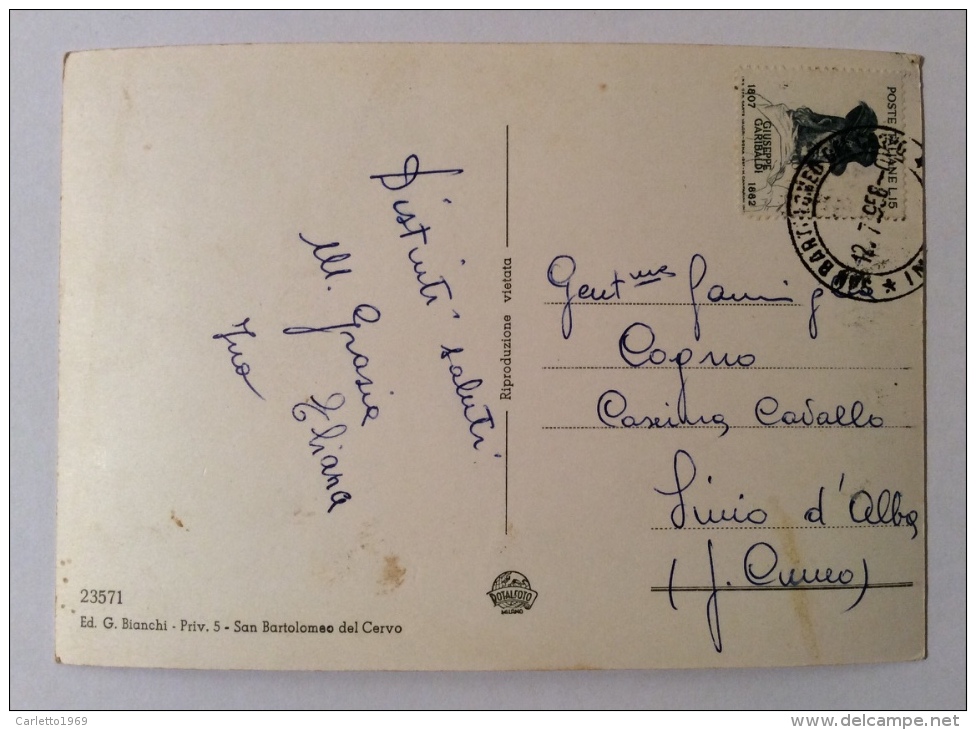 Distinti saluti
M. Grazia
Eliana
Ino
Riproduzione vietata
POSTE ITALIANE L.15
GIUSEPPE
GARIBALDI
1807 1882
SAN BARTOLOMEO
12.7-958-
Gent.me Famig
Cogno
Cascina Cavallo
Sinio d'Alba
(p. Cuneo)
23571
Ed. G. Bianchi - Priv. 5 - San Bartolomeo del Cervo
ROTALFOTO
MILANO
Carletto1969
www.delcampe.net